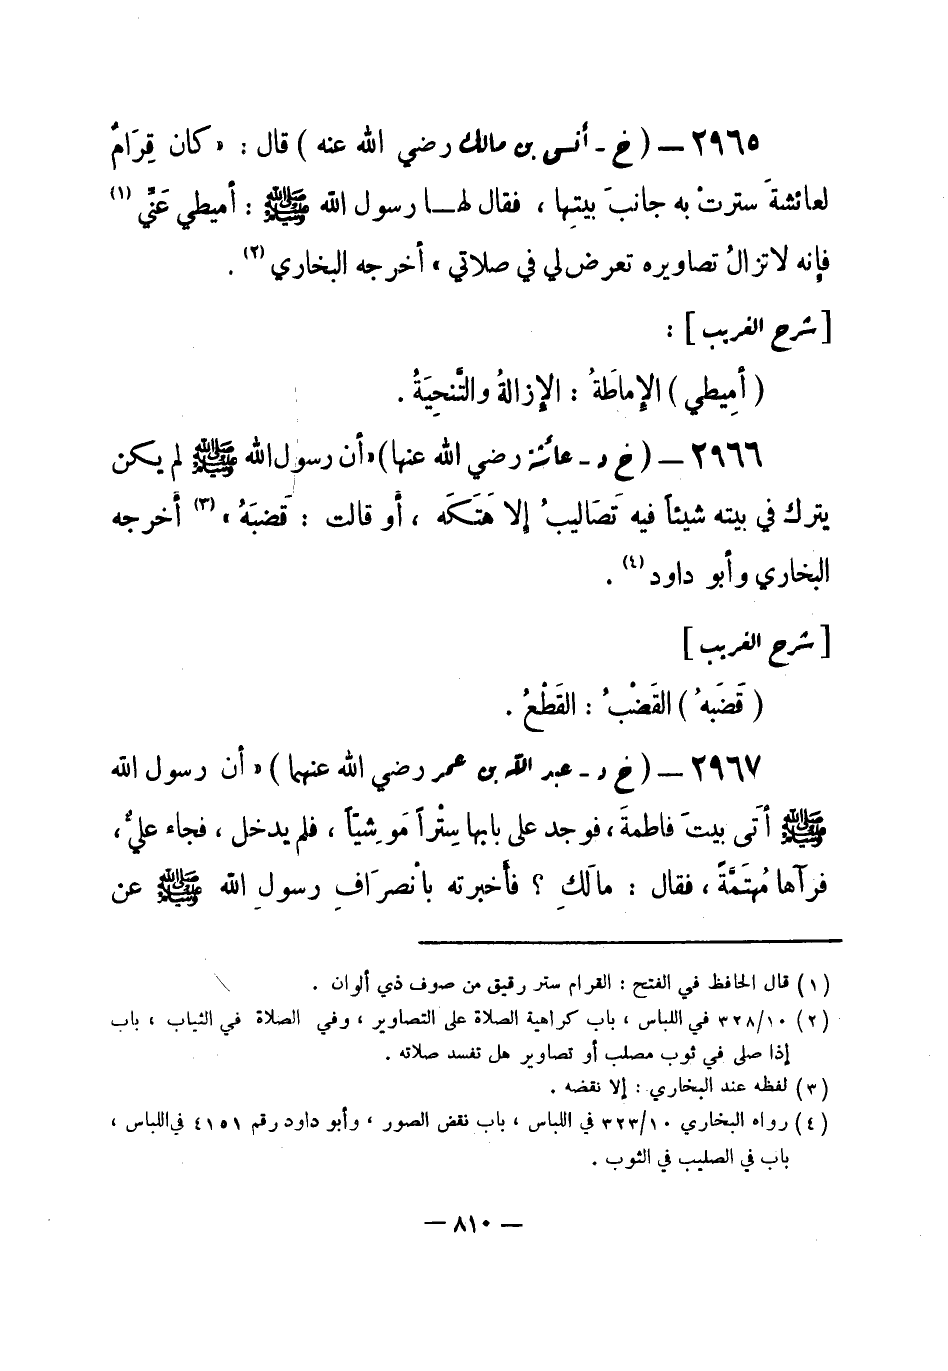 ٢٩٦٥ — ( خ - أنس بن مالك رضي الله عنه ) قال : « كان قِرَامٌ
لعائشةَ سترتْ به جانبَ بيتِها ، فقال لهــا رسول الله ﷺ : أميطي عَنِّي (١)
فإنه لا تزالُ تصاويره تعرض لي في صلاتي » أخرجه البخاري (٢) .
[ شرح الغريب ] :
( أَمِيطي ) الإِماطَةُ : الإِزالةُ والتَّنحِيَةُ .
٢٩٦٦ — ( خ د - عائشة رضي الله عنها ) « أن رسول الله ﷺ لم يكن
يترك في بيته شيئاً فيه تَصَاليبُ إلا هَتَكَه ، أو قالت : قَضبَهُ » (٣) أخرجه
البخاري وأبو داود (٤) .
[ شرح الغريب ]
( قَضَبَهُ ) القَضْبُ : القَطْعُ .
٢٩٦٧ — ( خ د - عبد الله بن عمر رضي الله عنهما ) « أن رسول الله
ﷺ أَتى بيتَ فاطمةَ ، فوجد على بابها سِتْراً مَوشِيّاً ، فلم يدخل ، فجاء عليٌّ ،
فرآها مُهتَمَّةً ، فقال : مالَكِ ؟ فأَخبرته بانْصرَافِ رسولِ الله ﷺ عن
(١) قال الحافظ في الفتح : القرام ستر رقيق من صوف ذي ألوان .
(٢) ٣٢٨/١٠ في اللباس ، باب كراهية الصلاة على التصاوير ، وفي الصلاة في الثياب ، باب
إذا صلى في ثوب مصلب أو تصاوير هل تفسد صلاته .
(٣) لفظه عند البخاري : إلا نقضه .
(٤) رواه البخاري ٣٢٣/١٠ في اللباس ، باب نقض الصور ، وأبو داود رقم ٤١٥١ في اللباس ،
باب في الصليب في الثوب .
— ٨١٠ —